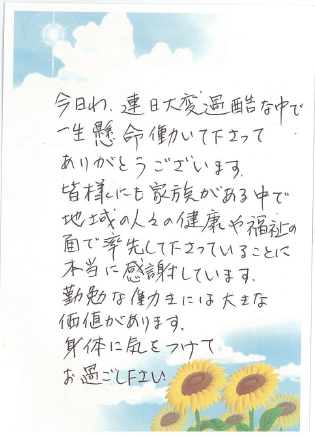 今日わ、連日大変過酷な中で
一生懸命働いて下さって
ありがとうございます。
皆様にも家族がある中で
地域の人々の健康や福祉の
面で率先して下さっていることに
本当に感謝しています。
勤勉な働き主には大きな
価値があります。
身体に気をつけて
お過ごし下さい